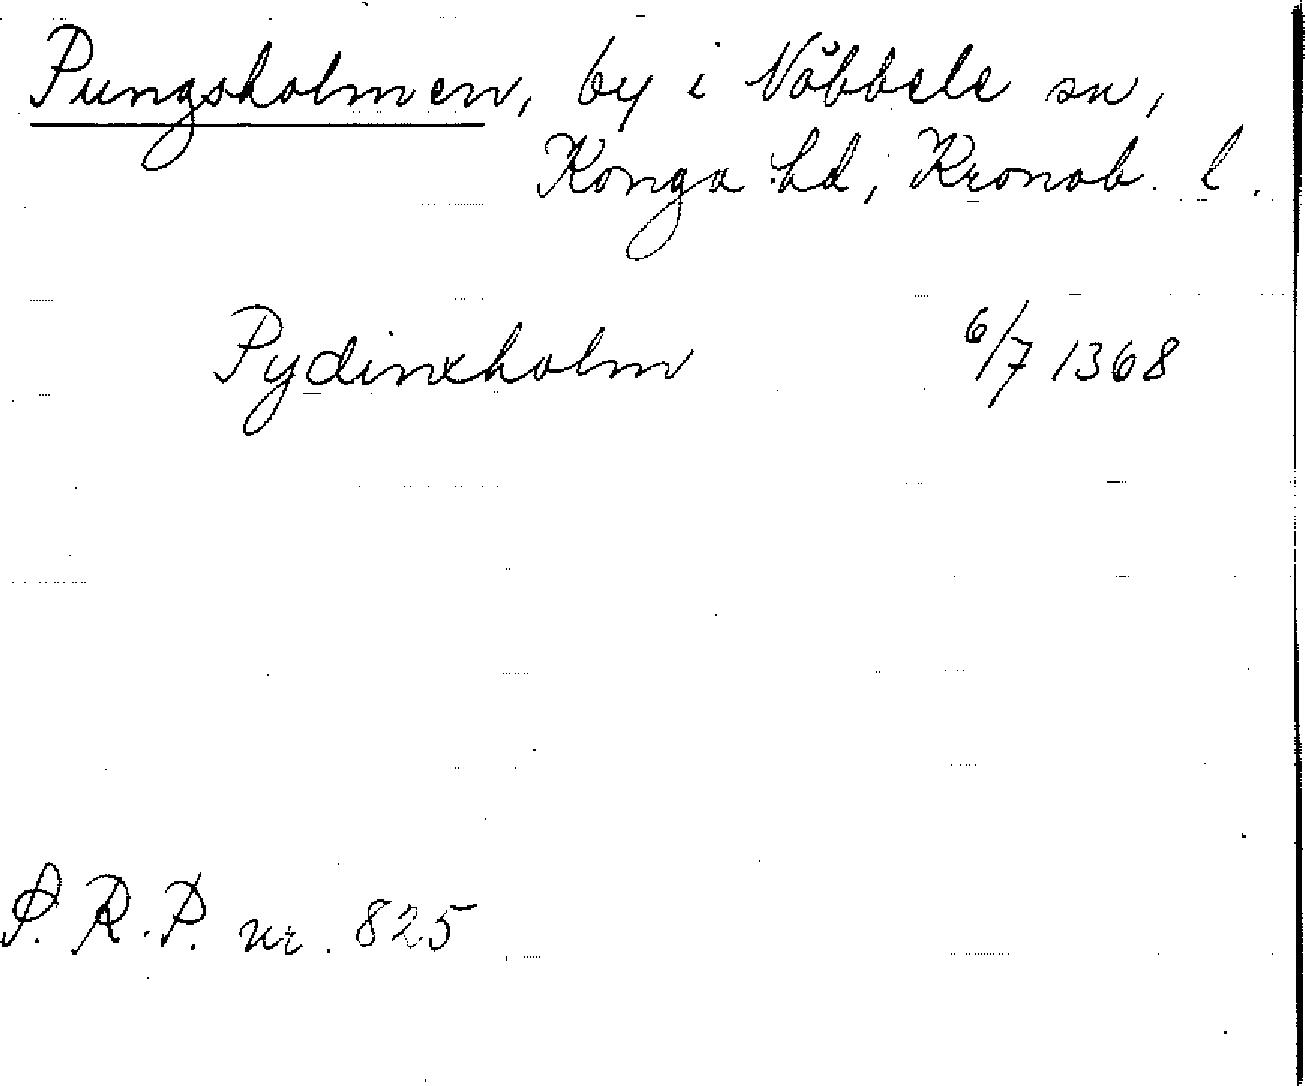 Pungsholmen, by i Nöbbele sn,
Konga hd, Kronob. l.
Pydinxholm 6/7 1368
S.R.P. nr. 825